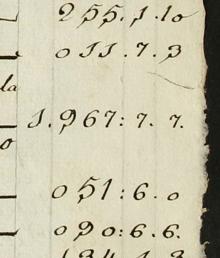 255.1.10
011.7.3
la
1.967:7.7.
o
051:6.0
090:6.6.
134.1.3